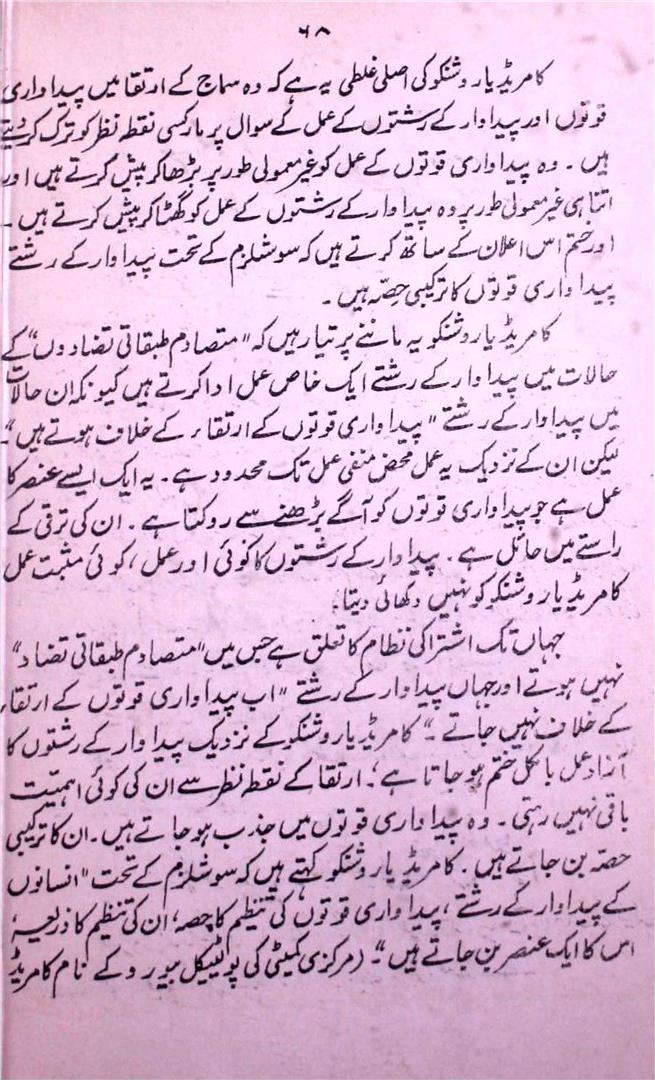 ۶۸
کامریڈ یاروشنکو کی اصلی غلطی یہ ہے کہ وہ سماج کے ارتقا میں پیداواری
قوتوں اور پیداوار کے رشتوں کے عمل کے سوال پر مارکسی نقطہ نظر کو ترک کر دیتے
ہیں ۔ وہ پیداواری قوتوں کے عمل کو غیر معمولی طور پر بڑھا کر پیش کرتے ہیں اور
اتنا ہی غیر معمولی طور پر وہ پیداوار کے رشتوں کے عمل کو گھٹا کر پیش کرتے ہیں ۔
اور ختم اس اعلان کے ساتھ کرتے ہیں کہ سوشلزم کے تحت پیداوار کے رشتے
پیداواری قوتوں کا ترکیبی حِصّہ ہیں ۔
کامریڈ یاروشنکو یہ ماننے پر تیار ہیں کہ "متصادم طبقاتی تضادوں" کے
حالات میں پیداوار کے رشتے ایک خاص عمل ادا کرتے ہیں کیونکہ ان حالات
میں پیداوار کے رشتے "پیداواری قوتوں کے ارتقاء کے خلاف ہوتے ہیں"۔
لیکن ان کے نزدیک یہ عمل محض منفی عمل تک محدود ہے ۔ یہ ایک ایسے عنصر کا
عمل ہے جو پیداواری قوتوں کو آگے بڑھنے سے روکتا ہے ۔ ان کی ترقی کے
راستے میں حائل ہے ۔ پیداوار کے رشتوں کا کوئی اور عمل ، کوئی مثبت عمل
کامریڈ یاروشنکو کو نہیں دکھائی دیتا ۔
جہاں تک اشتراکی نظام کا تعلق ہے جس میں "متصادم طبقاتی تضاد"
نہیں ہوتے اور جہاں پیداوار کے رشتے "اب پیداواری قوتوں کے ارتقاء
کے خلاف نہیں جاتے ۔" کامریڈ یاروشنکو کے نزدیک پیداوار کے رشتوں کا
آزاد عمل بالکل ختم ہو جاتا ہے ۔ ارتقا کے نقطہ نظر سے ان کی کوئی اہمیت
باقی نہیں رہتی ۔ وہ پیداواری قوتوں میں جذب ہو جاتے ہیں ۔ ان کا ترکیبی
حصہ بن جاتے ہیں ۔ کامریڈ یاروشنکو کہتے ہیں کہ سوشلزم کے تحت "انسانوں
کے پیداوار کے رشتے ، پیداواری قوتوں کی تنظیم کا حِصہ، ان کی تنظیم کا ذریعہ،
اس کا ایک عنصر بن جاتے ہیں"۔ (مرکزی کمیٹی کی پولیٹیکل بیورو کے نام کامریڈ